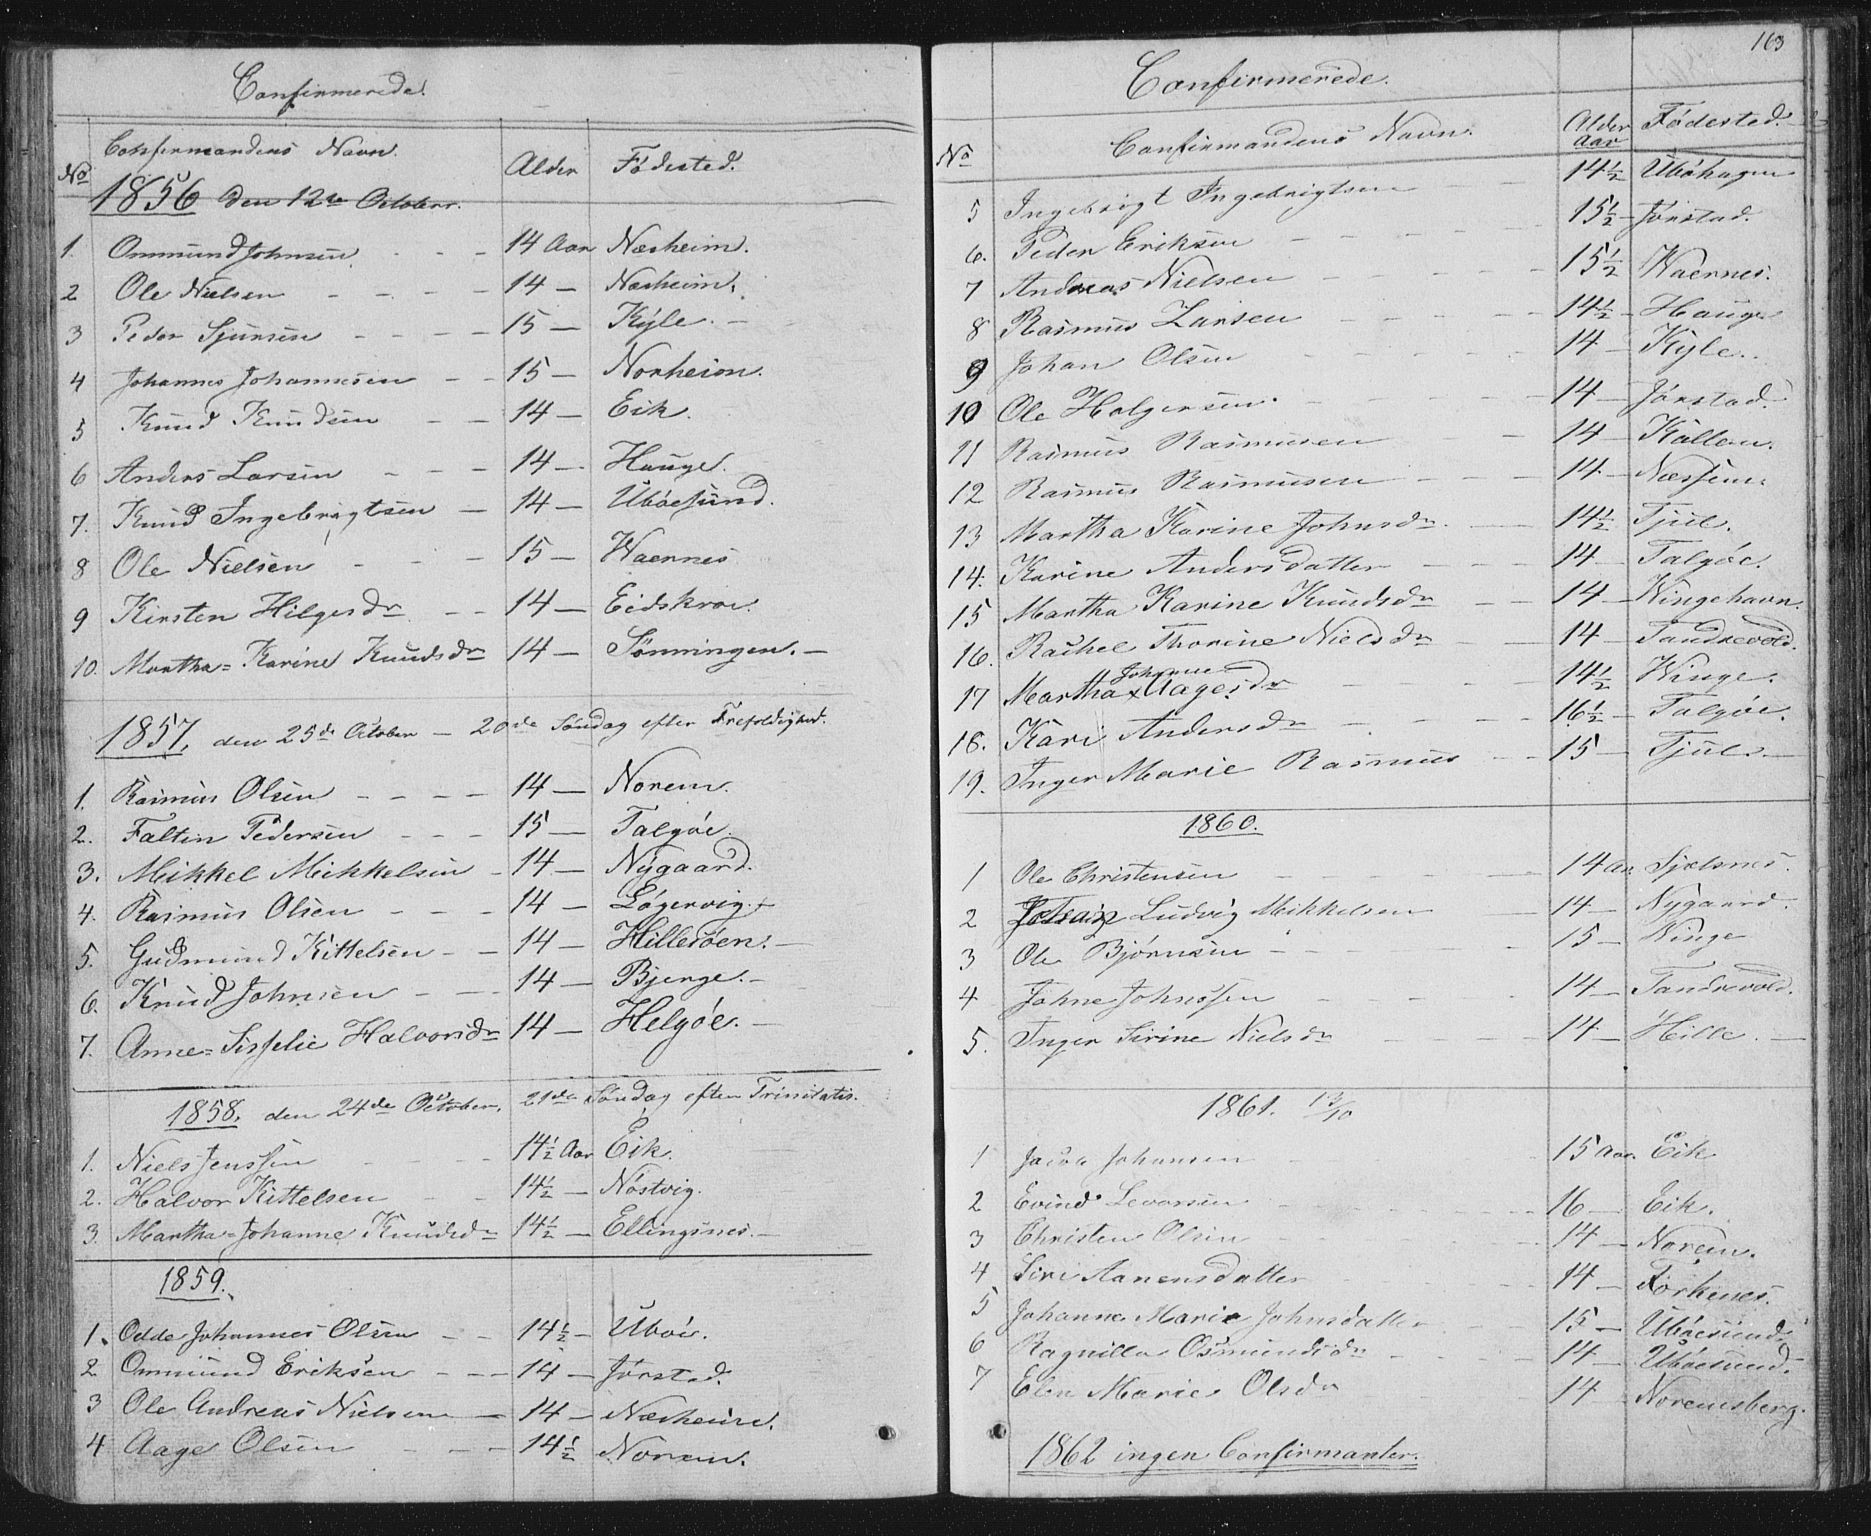 Confirmerede.
No Confirmandens Navn. Alder Födested.
1856 den 12te October.
1. Ommund Johnsen - - - 14 Aar Næsheim.
2 Ole Nielsen - - - - 14 — Næsheim.
3 Peder Sjursen - - - - 15 — Kÿle. -
4 Johannes Johannesen - - 15 — Norheim.
5 Knud Knudsen - - 14 — Eik.
6 Anders Larsen - - - 14 — Hauge.
7. Knud Ingebrigtsen - 14 — Ubøesund.
8 Ole Nielsen - - - 15 — Waernes
9 Kirsten Hilgesdr - - 14 — Eidskroe.
10. Martha=Karine Knudsdr 14 — Sönningen. -
1857. den 25de October — 20de Söndag efter Trefoldighed.
1. Rasmus Olsen - - - - 14 — Norem.
2. Faltin Pedersen - - - 15 — Talgöe.
3. Mikkel Mikkelsen - 14 — Nÿgaard.
4. Rasmus Olsen - - - 14 — Lögervig. -
5. Gudmund Kittelsen - - 14 — Hillesöen. -
6. Knud Johnsen - - - 14 — Bjerge. -
7. Anne=Sisselie Halvorsdr 14 — Helgöe. -
1858. den 24de October. 21de Söndag efter Trinitatis.
1. Niels Jenssen 14½ Aar Eik.
2. Halvor Kittelsen - - 14½ — Nöstvig.
3. Martha=Johanne Knudsdr 14½ — Ellingsnes. -
1859.
1. Odde Johannes Olsen - - 14½ — Uböe.
2 Ommund Eriksen - - - 14 — Jörstad.
3 Ole Andreas Nielsen — 14 — Næsheim.
4 Aage Olsen - - - 14½ Norem.
163
Confirmerede.
No Confirmandens Navn. Alder Aar Födested.
5 Ingebrigt Ingebrigtsen - - 14½ Uböhagen
6. Peder Eriksen - - - - 15½ — Jörstad.
7 Andreas Nielsen - - - - 15½ Waernes.
8 Rasmus Larsen - - - - 14½ — Hauge
9 Johan Olsen - - - - 14 — Kÿle.
10 Ole Holgersen. - - - - 14 — Jörstad.
11 Rasmus Rasmusen - 14 — Kallem.
12 Rasmus Rasmusen - - - 14 — Næssem.
13 Martha Karine Johnsdr. - 14½ Tjul.
14. Karine Andersdatter - - - 14 — Talgöe.
15 Martha Karine Knudsdr - - 14 — Wingehavn.
16. Rachel Thorine Nielsdr - - 14 — Tandrevold.
17 Martha x Johanne Aagesdr - - - 14½ Winge.
18. Kari Andersdr - - - - 16½ — Talgöe.
19. Inger Marie Rasmus - - 15 — Tjul. —
1860.
1 Ole Christensen - - - - 14 Aar Sjelsnes.
2 Johan Ludvig Mikkelsen - 14 — Nÿgaard.
3 Ole Björnsen - - 15 — Winge
4 Johne Johnssen - - - 14 — Tandrevold.
5. Inger Sirine Nielsdr - - - - 14 — Hille. —
1861. 13/10
1 Jacob Johansen - - 15 Aar. Eik
2 Evind Levorsen - - - - 16 — Eik.
3 Christen Olsen - - - 14 — Norem.
4 Siri Aanensdatter - - - 14 —
5 Johanne Marie Johnsdatter - - 15 — Uböesund.
6 Ragnilla Osmundsdr - - - - 14 — Uböesund.
7 Elen Marie Olsdr - - - 14 — Noremsberg.
1862 ingen Confirmanter.